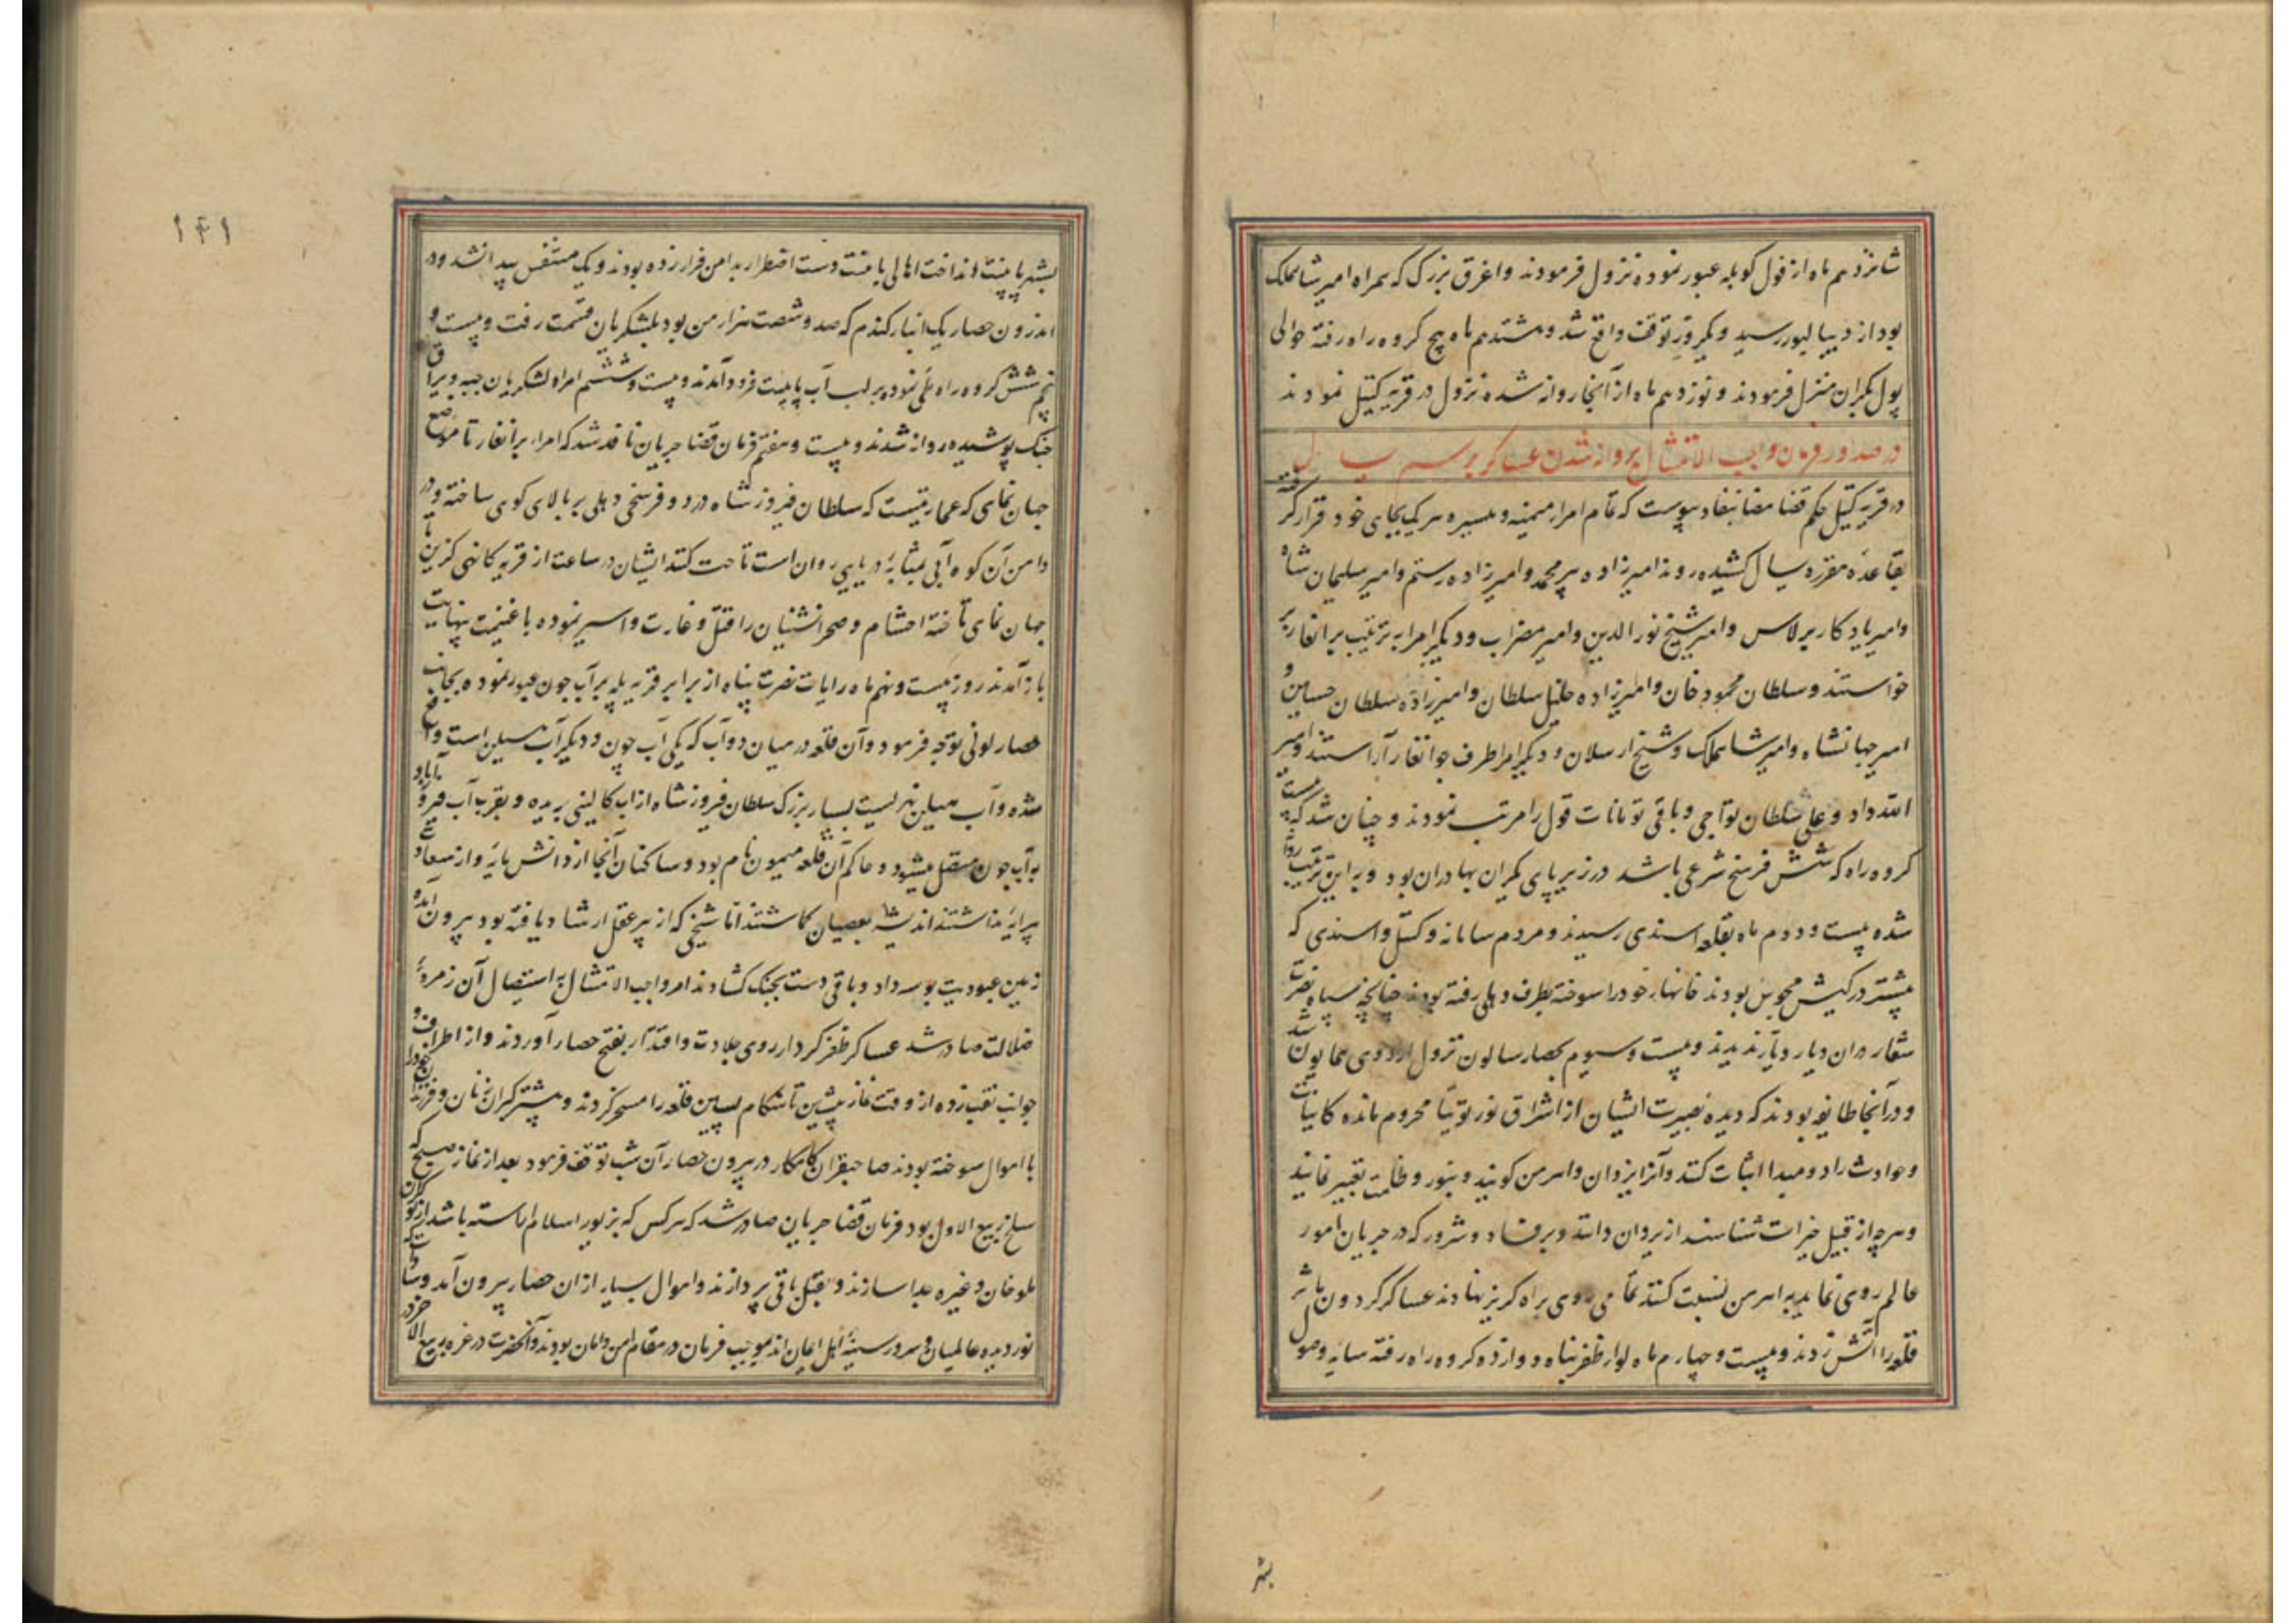 شانزدهم ماه از فول کوبله عبور نموده نزول فرمودند و اغرق بزرک که همراه امیر شاهملک
بود از دیبالپور رسید و یکروز توقف واقع شد و هشتدهم ماه پنج کروه راه رفته حوالی
پول بکران منزل فرمودند و نوزدهم ماه از آنجا روانه شده نزول در قریه کتیل نمودند
در صدور فرمان واجب الامتثال بروانه شدن عساکر برسم یسال
در قریه کتیل حکم قضا مضا بنفاد پیوست که تمام امراء میمنه و میسره هر یک بجای خود قرار گرفته
بقاعدهٔ مقرره یسال کشیده روند امیرزاده پیر محمد و امیرزاده رستم و امیر سلیمان شاه
و امیر یادکار برلاس و امیر شیخ نور الدین و امیر مضراب و دیکر امرا به ترتیب برانغار بر
خواستند و سلطان محمود خان و امیرزاده خلیل سلطان و امیرزاده سلطان حسین و
امیر جهانشاه و امیر شاهملک و شیخ ارسلان و دیکر امرا طرف جوانغار آراستند و امیر
الله داد و علی سلطان تواجی و باقی تومانات قول را مرتب نمودند و چنان شد که بیست
کروه راه که شش فرسخ شرعی باشد در زیر پای یکران بهادران بود و باین ترتیب روانه
شده بیست و دوم ماه بقلعه اسندی رسیدند و مردم سامانه و کتیل و اسندی که
بیشتر در کیش مجوس بودند خانهاء خود را سوخته بطرف دهلی رفته بودند چنانچه سپاه نصرت
شعار در ان دیار دیار ندیدند و بیست و سیوم بحصار سالون نزول اردوی همایون شد
و در آنجا طایفه بودند که دیده بصیرت ایشان از اشراق نور توتیا محروم مانده کاینات
و حوادث را دو مبدا اثبات کنند و آنرا یزدان و اهرمن کویند و بنور و ظلمت تعبیر نمایند
و هرچه از قبیل خیرات شناسند از یزدان دانند و هر فساد و شرور که در جریان امور
عالم روی نماید به اهرمن نسبت کنند تمامی روی براه کریز نهادند عساکر کردون ماثر
قلعه را آتش زدند و بیست و چهارم ماه لواء ظفر پناه دوازده کروه راه رفته سایه وصول
بشهر
۱۴۱
بشهر پانیت انداخت اهالی پانیت دست اضطرار بدامن فرار زده بودند و یک متنفس پیدا نشد و در
اندرون حصار یک انبار کندم که صد و شصت هزار من بود بلشکریان قسمت رفت و بیست و
پنجم شش کروه راه طی نموده بر لب آب پانیت فرود آمدند و بیست و ششم امرا و لشکریان جیبه و یراق
جنک پوشیده روانه شدند و بیست و هفتم فرمان قضا جریان نافد شد که امراء برانغار تا موضع
جهان نمای که عمارتیست که سلطان فیروز شاه در دو فرسخی دهلی بر بالای کوی ساخته و در
دامن آن کوه آبی بمثابهٔ دریایی روان است تاخت کنند ایشان در ساعت از قریه کانهی کزین تا
جهان نمای تاخته احشام و صحرا نشینان را قتل و غارت و اسیر نموده با غنیمت بینهایت
باز آمدند روز بیست و نهم ماه رایات نصرت پناه از برابر قریه پله بر آب جون عبور نموده بجانب
حصار لونی توجه فرمود و آن قلعه در میان دو آب که یکی آب جون و دیکر آب هیلین است واقع
شده و آب هیلین نهریست بسیار بزرک سلطان فیروز شاه از اب کالینی بریده و بقرب آب فیروز آباد
به آب جون متصل میشود و حاکم آن قلعه میمون نام بود و ساکنان آنجا از دانش پایه و از سعادت
پیرایه نداشتند اندیشه بعصیان کماشتند اما شیخی که از پیر عقل ارشاد یافته بود بیرون آمده
زمین عبودیت بوسه داد و باقی دست بجنک کشادند امر واجب الامتثال به استیصال آن زمرهٔ
ضلالت صادر شد عساکر ظفر کردار روی جلادت و اقتدار بفتح حصار آوردند و از اطراف و
جوانب نقب زده از وقت نماز پیشین تا هنکام پسین قلعه را مسخر کردند و بیشتر کبران زنان و فرزندان خود را
با اموال سوخته بودند صاحبقران کامکار در بیرون حصار آن شب توقف فرمود بعد از نماز صبح که
سلخ ربیع الاول بود فرمان قضا جریان صادر شد که هر کس که بزیور اسلام اراسته باشد از نوکران
ملو خان و غیره جدا سازند و بقتل باقی پردازند و اموال بسیار از ان حصار بیرون آمد و سادات که
نور دیده عالمیان و سرور سینهٔ اهل ایمان اند بموجب فرمان در مقام امن و امان بودند و آنحضرت در غره ربیع الاخر در